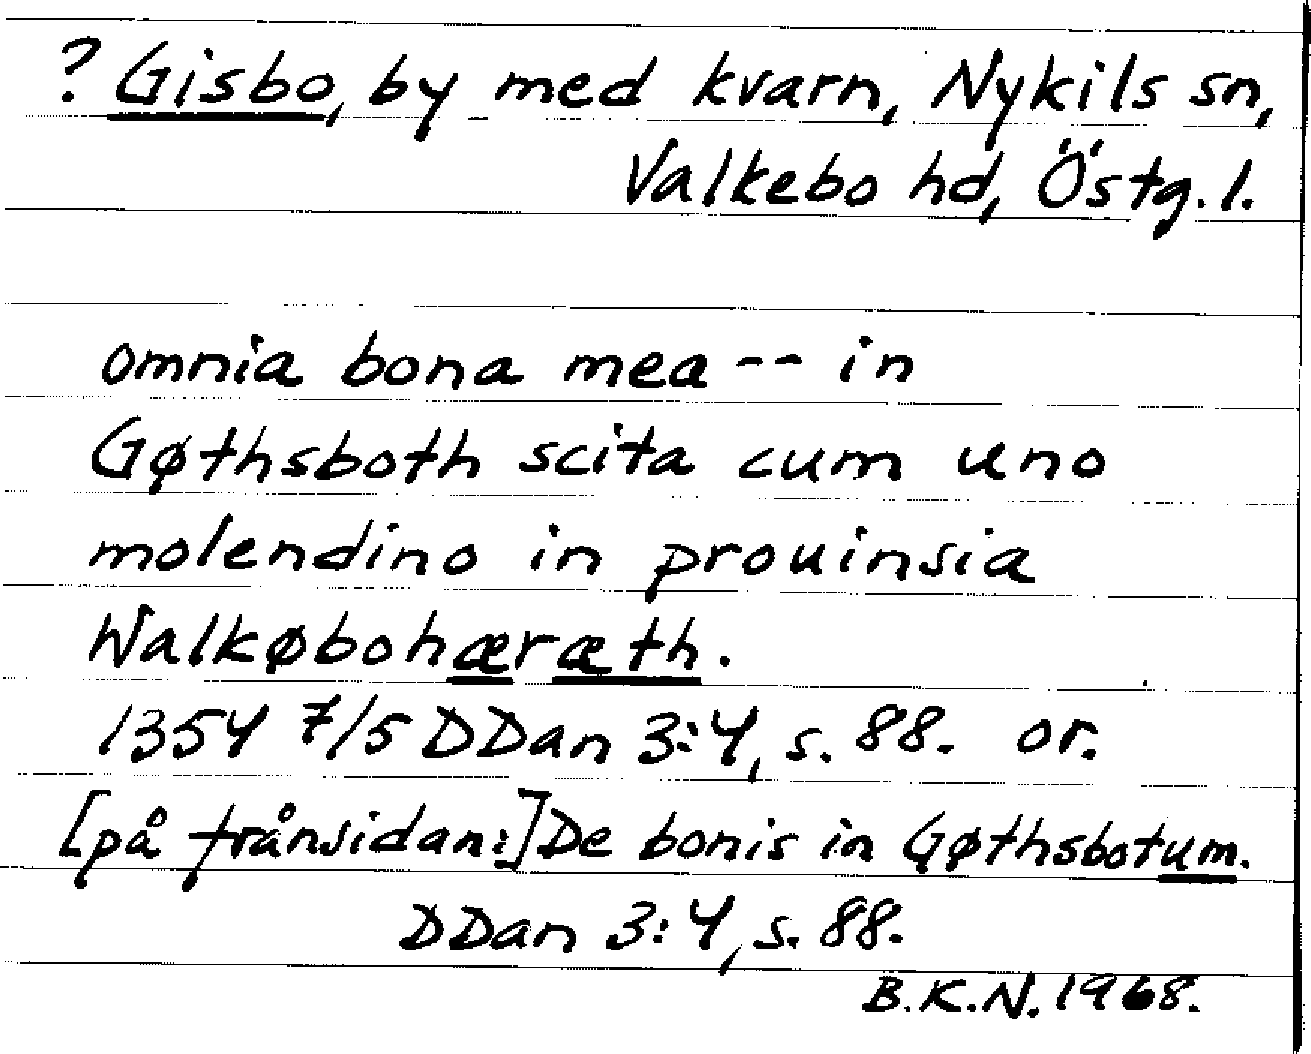 ? Gisbo, by med kvarn, Nykils sn,
Valkebo hd, Östg. l.
omnia bona mea -- in
Gøthsboth scita cum uno
molendino in prouinsia
Walkøbohæræth.
1354 7/5 DDan 3:4, s. 88. or.
[på frånsidan:] De bonis in Gøthsbotum.
DDan 3:4, s. 88.
B.K.N. 1968.